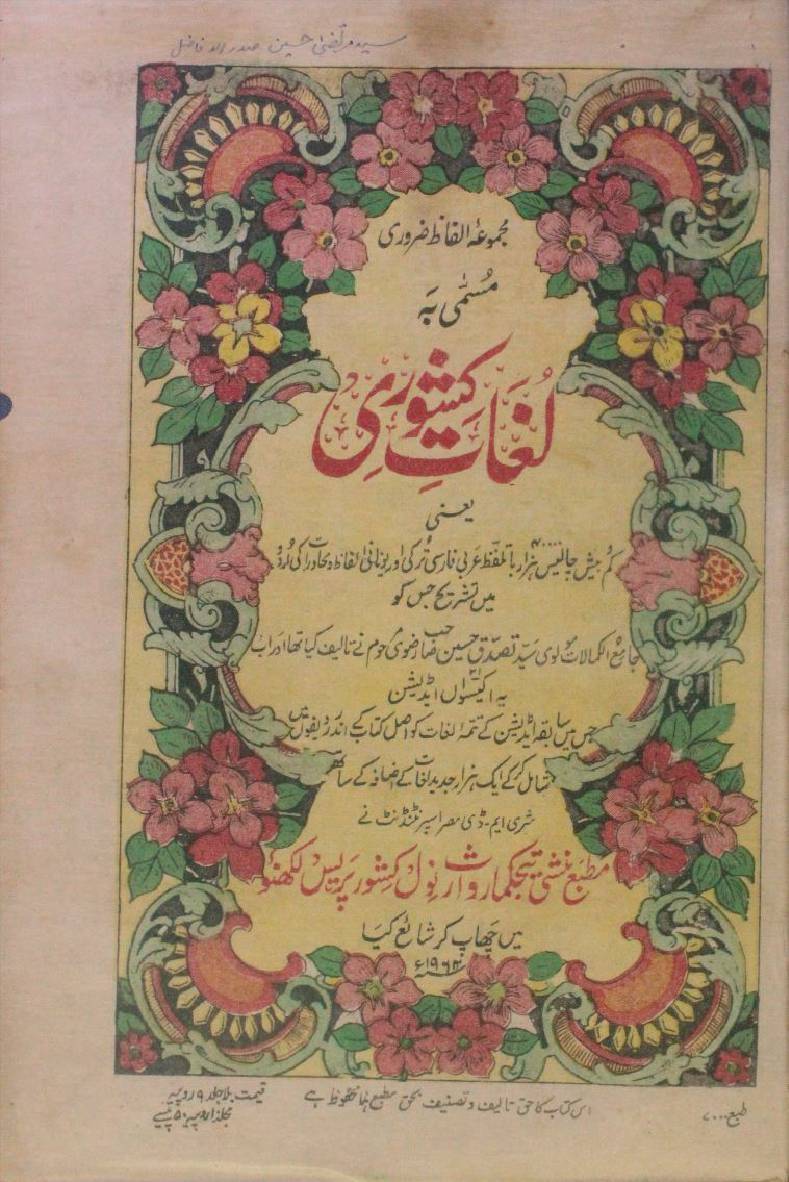 سید مرتضیٰ حسین صدر الافاضل
مجموعۂ الفاظ ضروری
مُسمّٰی بَہ
لُغاتِ کِشوری
یعنی
کم و بیش چالیس ہزار ۴۰۰۰۰ با تلفظ عربی فارسی ترکی اور یونانی الفاظ و محاورات کی اُردُو
میں تشریح جس کو
جامع الکمالات مولوی سیّد تصدّق حسین صاحب رضوی مرحوم نے تالیف کیا تھا اور اب
یہ اکیسواں ایڈیشن
جس میں سابقہ ایڈیشن کے تتمۂ لغات کو اصل کتاب کے اندر ردیفوں میں
شامل کر کے ایک ہزار جدید لغات کے اضافہ کے ساتھ
شری ایم۔ ڈی مصرا سپرنٹنڈنٹ نے
مطبع منشی تیجکمار وارث نول کشور پریس لکھنؤ
میں چھاپ کر شائع کیا
۱۹۶۴ء
قیمت بلا جلد ۹ روپیہ
مجلد روپیہ ۵۰ پیسے
اس کتاب کا حق تالیف و تصنیف بحق مطبع ہٰذا محفوظ ہے
طبع ۷۰۰۰